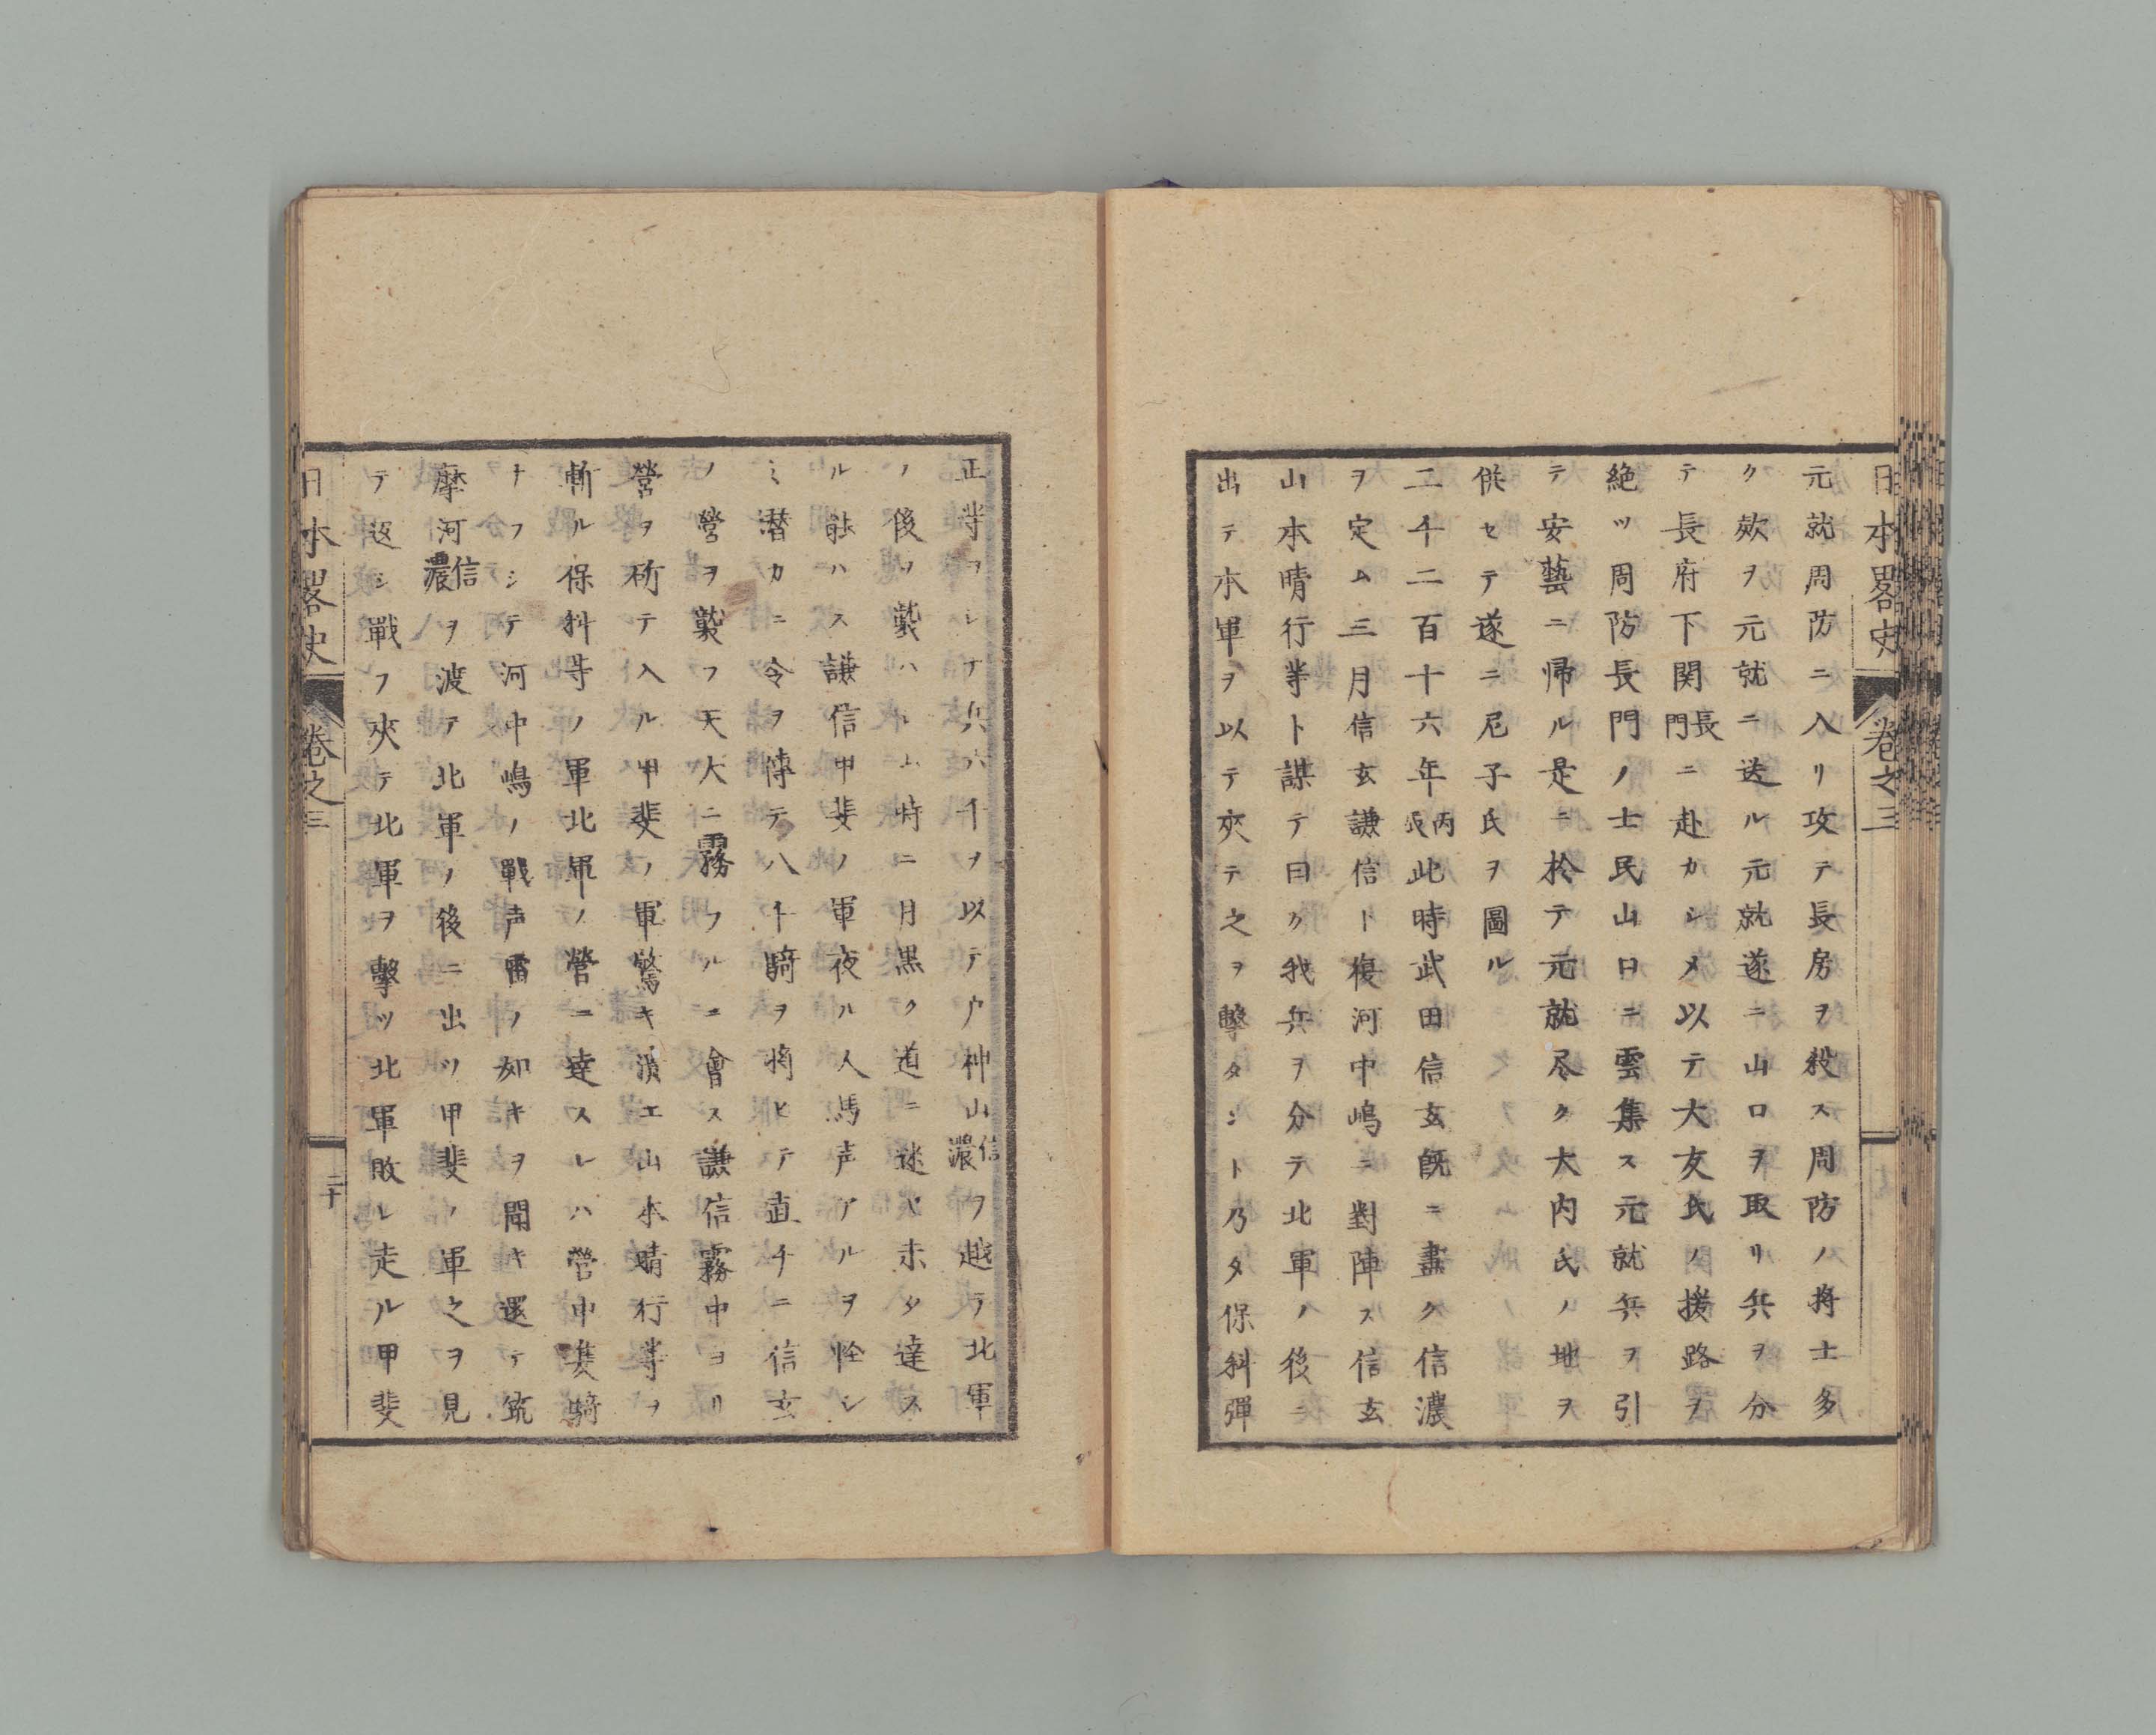 日本畧史 卷之三
元就周防ニ入リ攻テ長房ヲ殺ス周防ノ将士多
ク欵ヲ元就ニ送ル元就遂ニ山口ヲ取リ兵ヲ分
テ長府下関長門ニ赴カシメ以テ大友氏ノ援路ヲ
絶ツ周防長門ノ士民山口ニ雲集ス元就兵ヲ引
テ安藝ニ帰ル是ニ於テ元就尽ク大内氏ノ地ヲ
供セテ遂ニ尼子氏ヲ圖ル
二千二百十六年丙辰此時武田信玄既ニ盡ク信濃
ヲ定ム三月信玄謙信ト復河中嶋ニ對陣ス信玄
山本晴行等ト謀テ曰ク我兵ヲ分テ北軍ノ後ニ
出テ本軍ヲ以テ夾テ之ヲ擊タント乃タ保科彈
正等ヲシテ兵六千ヲ以テ戸神山信濃ヲ越テ北軍
ノ後ヲ襲ハシム時ニ月黒ク道ニ迷ヒ未タ達ス
ル能ハス謙信甲斐ノ軍夜ル人馬声アルヲ怪シ
ミ潜カニ令ヲ傳テ八千騎ヲ将ヒテ直チニ信玄
ノ營ヲ襲フ天大ニ霧フルニ會ス謙信霧中ヨリ
營ヲ斫テ入ル甲斐ノ軍驚キ潰エ山本晴行等ヲ
斬ル保科等ノ軍北軍ノ營ニ達スレハ營中隻騎
ナフシテ河中嶋ノ戰声雷ノ如キヲ聞キ還テ筑
摩河信濃ヲ渡テ北軍ノ後ニ出ツ甲斐ノ軍之ヲ見
テ返シ戰フ夾テ北軍ヲ擊ツ北軍敗レ走ル甲斐
日本畧史 卷之三 二十